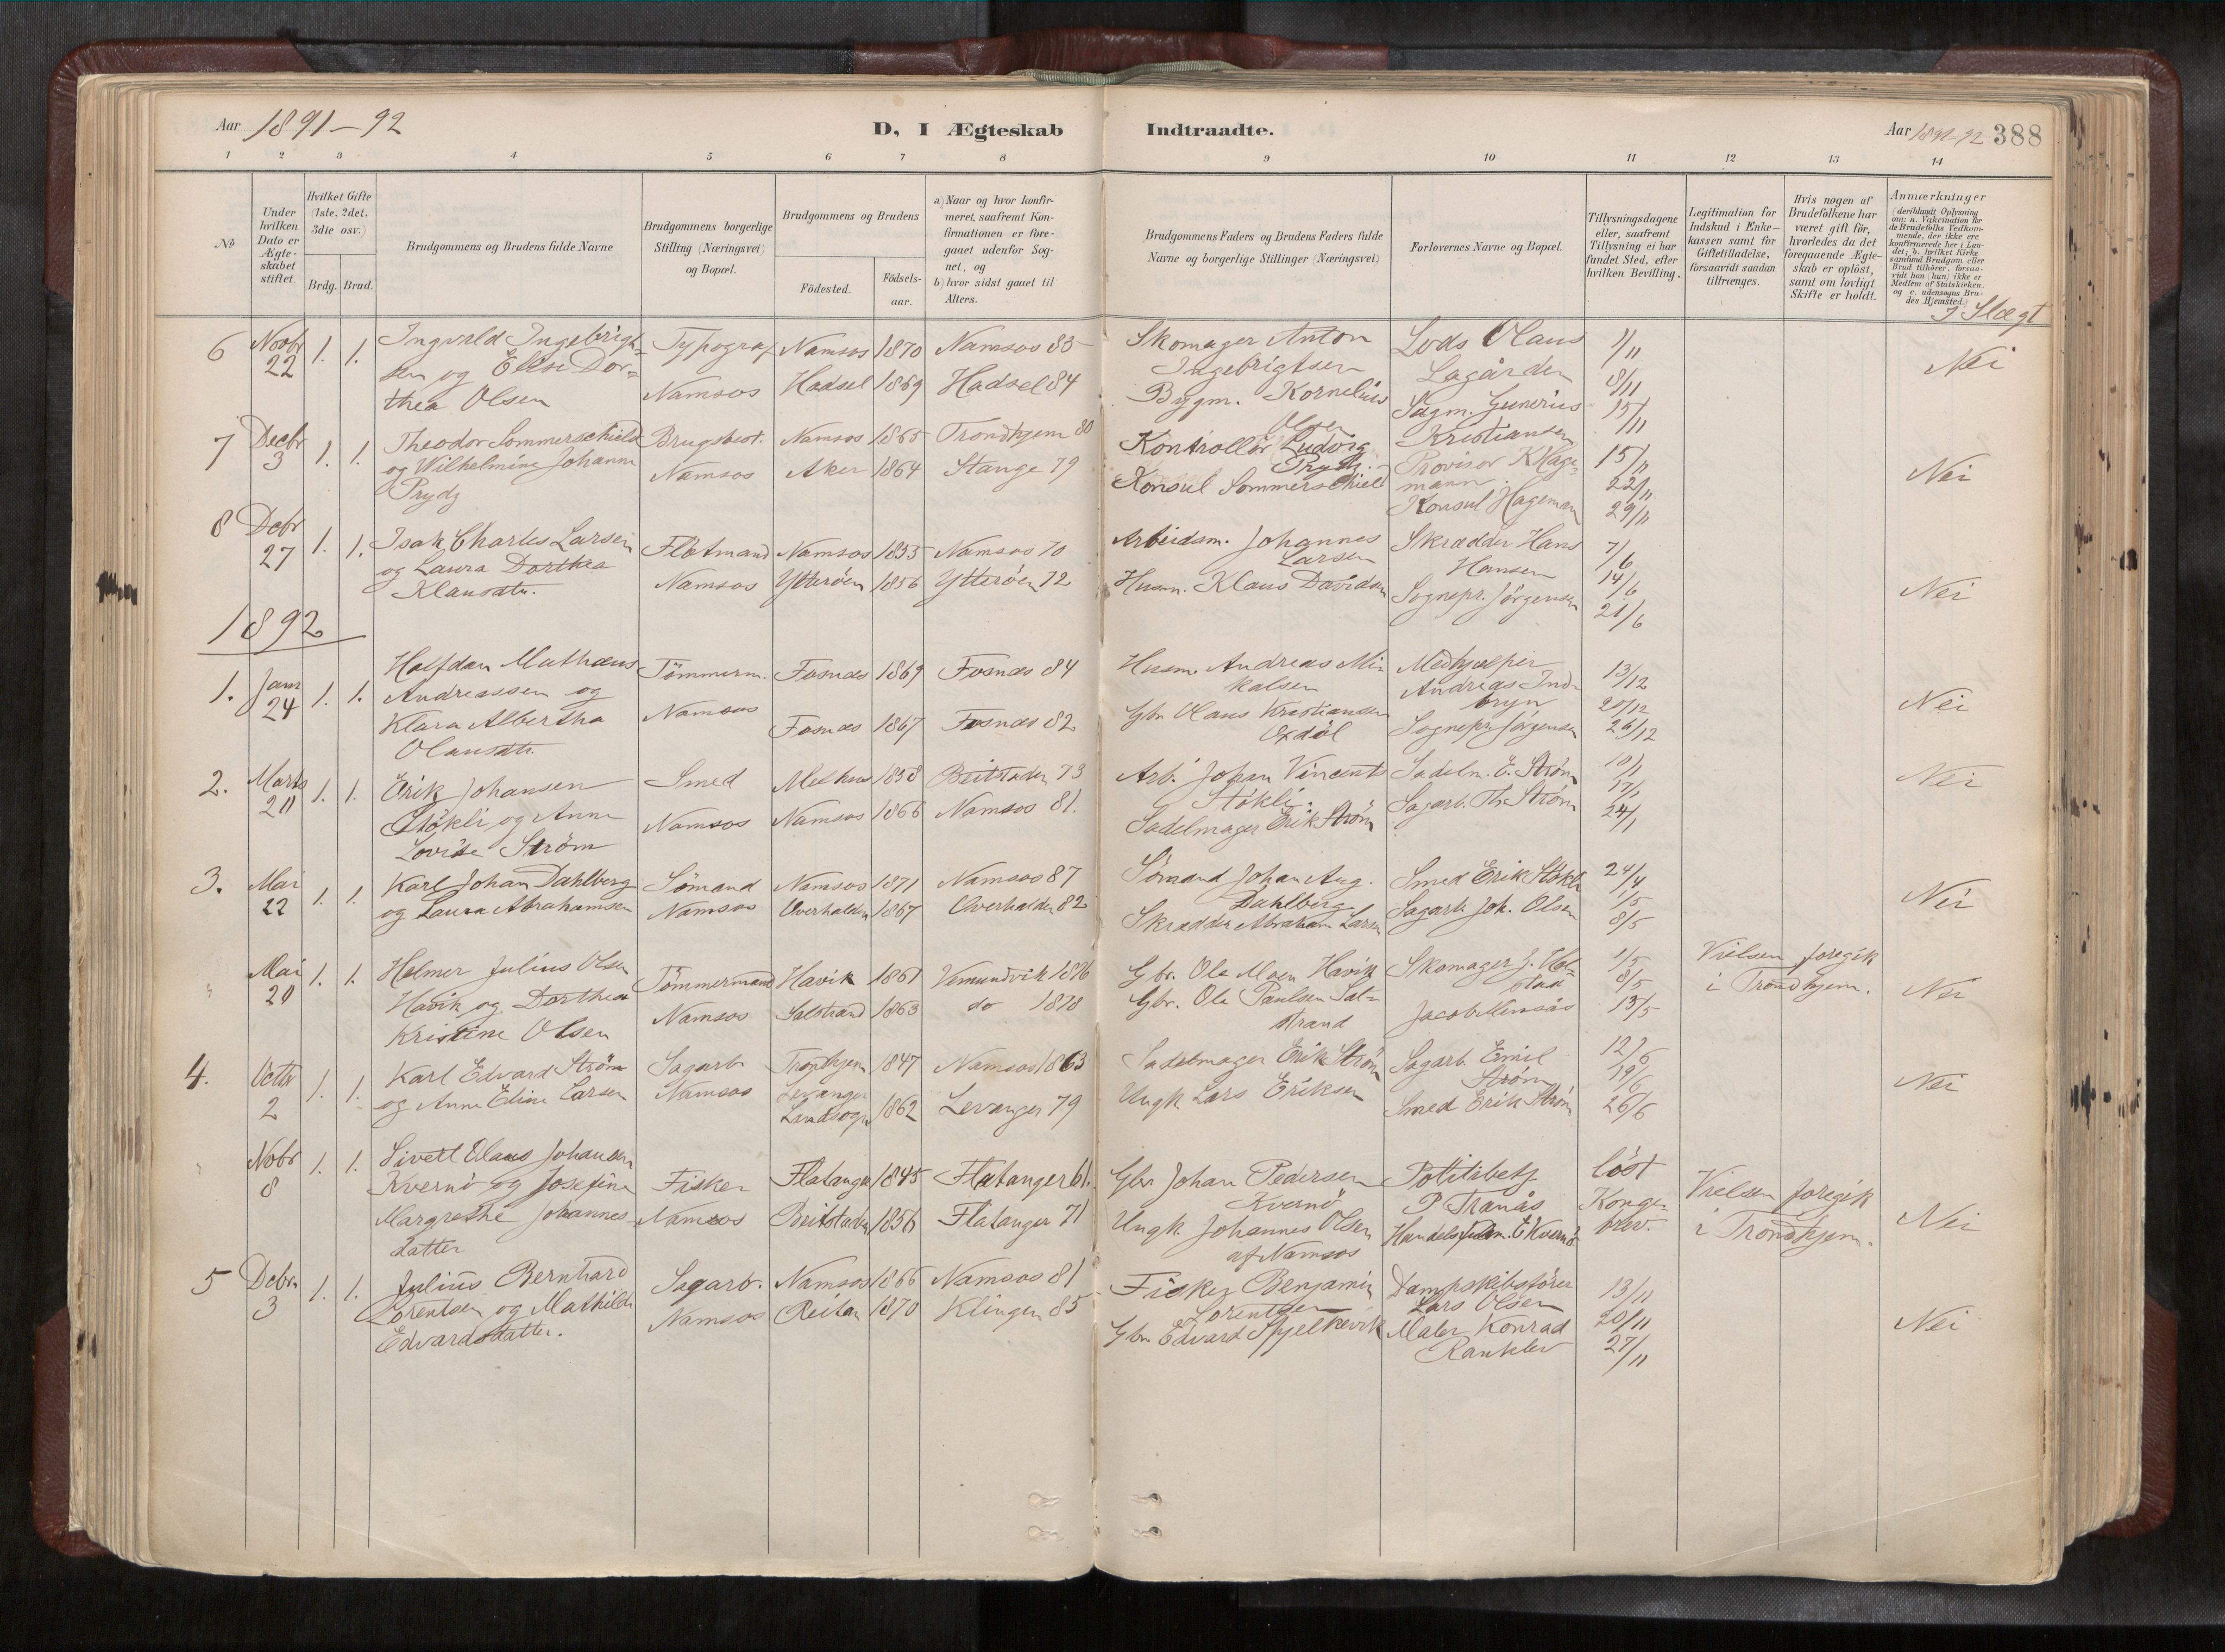 Aar 1891-92
D, I Ægteskab
Indtraadte.
Aar 1891-92 388
1 2 3 4 5 6 7 8 9 10 11 12 13 14
No
Under hvilken Dato er Ægte-skabet stiftet.
Hvilket Gifte (1ste, 2det, 3die osv.)
Brdg. Brud.
Brudgommens og Brudens fulde Navne
Brudgommens borgerlige Stilling (Næringsvei) og Bopæl.
Brudgommens og Brudens
Födested.
Födsels-aar.
a) Naar og hvor konfir-meret, saafremt Kon-firmationen er fore-gaaet udenfor Sog-net, og
b) hvor sidst gaaet til Alters.
Brudgommens Faders og Brudens Faders fulde Navne og borgerlige Stillinger (Næringsvei)
Forlovernes Navne og Bopæl.
Tillysningsdagene eller, saafremt Tillysning ei har fundet Sted, efter hvilken Bevilling.
Legitimation for Indskud i Enke-kassen samt for Giftetilladelse, forsaavidt saadan tiltrænges.
Hvis nogen af Brudefolkene har været gift för, hvorledes da det foregaaende Ægte-skab er oplöst, samt om lovligt Skifte er holdt.
Anmærkninger (deriblandt Oplysning om: a. Vakcination for de Brudefolks Vedkom-mende, der ikke ere konfirmerede her i Lan-det; b. hvilket Kirke samfund Brudgom eller Brud tilhörer, forsaa-vidt han (hun) ikke er Medlem af Statskirken. og c. udensogns Bru-des Hjemsted.)
I Slægt
6 Novbr 22 1. 1. Ingvald Ingebrigt-
sen og Elise Dor-
thea Olsen
Typograf
Namsos
Namsos 1870 Namsos 85
Hadsel 1869 Hadsel 84
Skomager Anton
Ingebrigtsen
Bygm. Kornelius
Olsen
Lods Olaus
Lagården
Sagm. Gunerius
Kristiansen
1/11
8/11
15/11
Nei
7 Decbr 3 1. 1. Theodor Sommerschield
og Wilhelmine Johanne
Prydz
Brugsbest.
Namsos
Namsos 1865 Trondhjem 80
Aker 1864 Stange 79
Kontrollör Ludvig
Prydz.
Konsul Sommerschield
Provisor K Hage-
mann.
Konsul Hageman
15/11
22/11
29/11
Nei
8 Debr 27 1. 1. Isak Charles Larsen
og Laura Dorthea
Klausdtr.
Flötmand
Namsos
Namsos 1855 Namsos 70
Ytteröen 1856 Ytteröen 72
Arbeidsm. Johannes
Larsen
Husm. Klaus Davidsen
Skrædder Hans
Hansen
Sognepr. Jörgensen
7/6
14/6
21/6
Nei
1892
1. Janr 24 1. 1. Halfdan Mathæus
Andreassen og
Klara Albertha
Olausdtr.
Tömmerm.
Namsos
Fosnæs 1869 Fosnæs 84
Fosnæs 1867 Fosnæs 82
Husm. Andreas Mi-
kalsen
Gbr Olaus Kristiansen
Medhjælper
Andreas Ind-
bryn
Sognepr. Jörgensen
13/12
20/12
26/12
Nei
2. Marts 20 1. 1. Erik Johansen
Stökli og Anne
Lovise Ström
Smed
Namsos
Melhus 1858 Beitstaden 73
Namsos 1866 Namsos 81.
Arb. Johan Vincents
Stökli.
Sadelmager Erik Ström
Sadelm. E. Ström
Sagarb. Th. Ström
10/1
17/1
24/1
Nei
3. Mai 22 1. 1. Karl Johan Dahlberg
og Laura Abrahamsen
Sömand
Namsos
Namsos 1871 Namsos 87
Overhalden 1867 Overhalden 82
Sömand Johan Aug.
Dahlberg
Skrædder Abraham Larsen
Smed Erik Stökli
Sagarb. Joh. Olsen
24/4
1/5
8/5
Nei
" Mai 20 1. 1. Helmer Julius Olsen
Havik og Dorthea
Kristine Olsen
Tömmermand
Namsos
Havik 1861 Vemundvik 1876
Salstrand 1863 do 1878
Gbr. Ole Moen Havik
Gbr. Ole Paulsen Sal-
strand
Skomager J. Hol-
stad
Jacob Aunsås
1/5
8/5
15/5
Vielsen foregik
i Trondhjem.
Nei
4. Octbr 2 1. 1. Karl Edvard Ström
og Anne Eline Larsen
Sagarb
Namsos
Trondhjem 1847 Namsos 1863
Levanger
Landsogn 1862 Levanger 79
Sadelmager Erik Ström
Ungk. Lars Eriksen
Sagarb. Emil
Ström
Smed Erik Ström
12/6
19/6
26/6
Nei
" Nobr 8 1. 1. Sivert Olaus Johansen
Kvernö og Josefine
Margrethe Johannes-
datter
Fisker
Namsos
Flatanger 1845 Flatanger 61.
Beitstaden 1856 Flatanger 71
Gbr Johan Pedersen
Kvernö
Ungk. Johannes Olsen
af Namsos
Politibetj
P Tranås
Handelsfuldm. E Kvernö
löst
Konge-
brev.
Vielsen foregik
i Trondhjem.
Nei
5 Debr. 3 1. 1. Julius Bernhard
Lorentsen og Mathilde
Edvardsdatter.
Sagarb.
Namsos
Namsos 1866 Namsos 81
Reitan 1870 Klingen 85
Fisker Benjamin
Lorentsen
Gbr Edvard Spjelkevik
Dampskibsförer
Lars Olsen
Maler Konrad
Ranklev
13/11
20/11
27/11
Nei